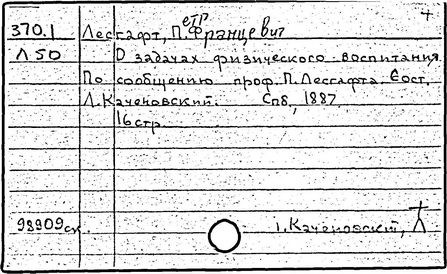 370.1 Лесгафт, Петр Францевич
Л 50 О задачах физического воспитания.
По сообщению проф. П. Лесгафта. Сост.
Л. Каченовский. Спб, 1887.
16 стр.
98909 ск 1. Каченовский,